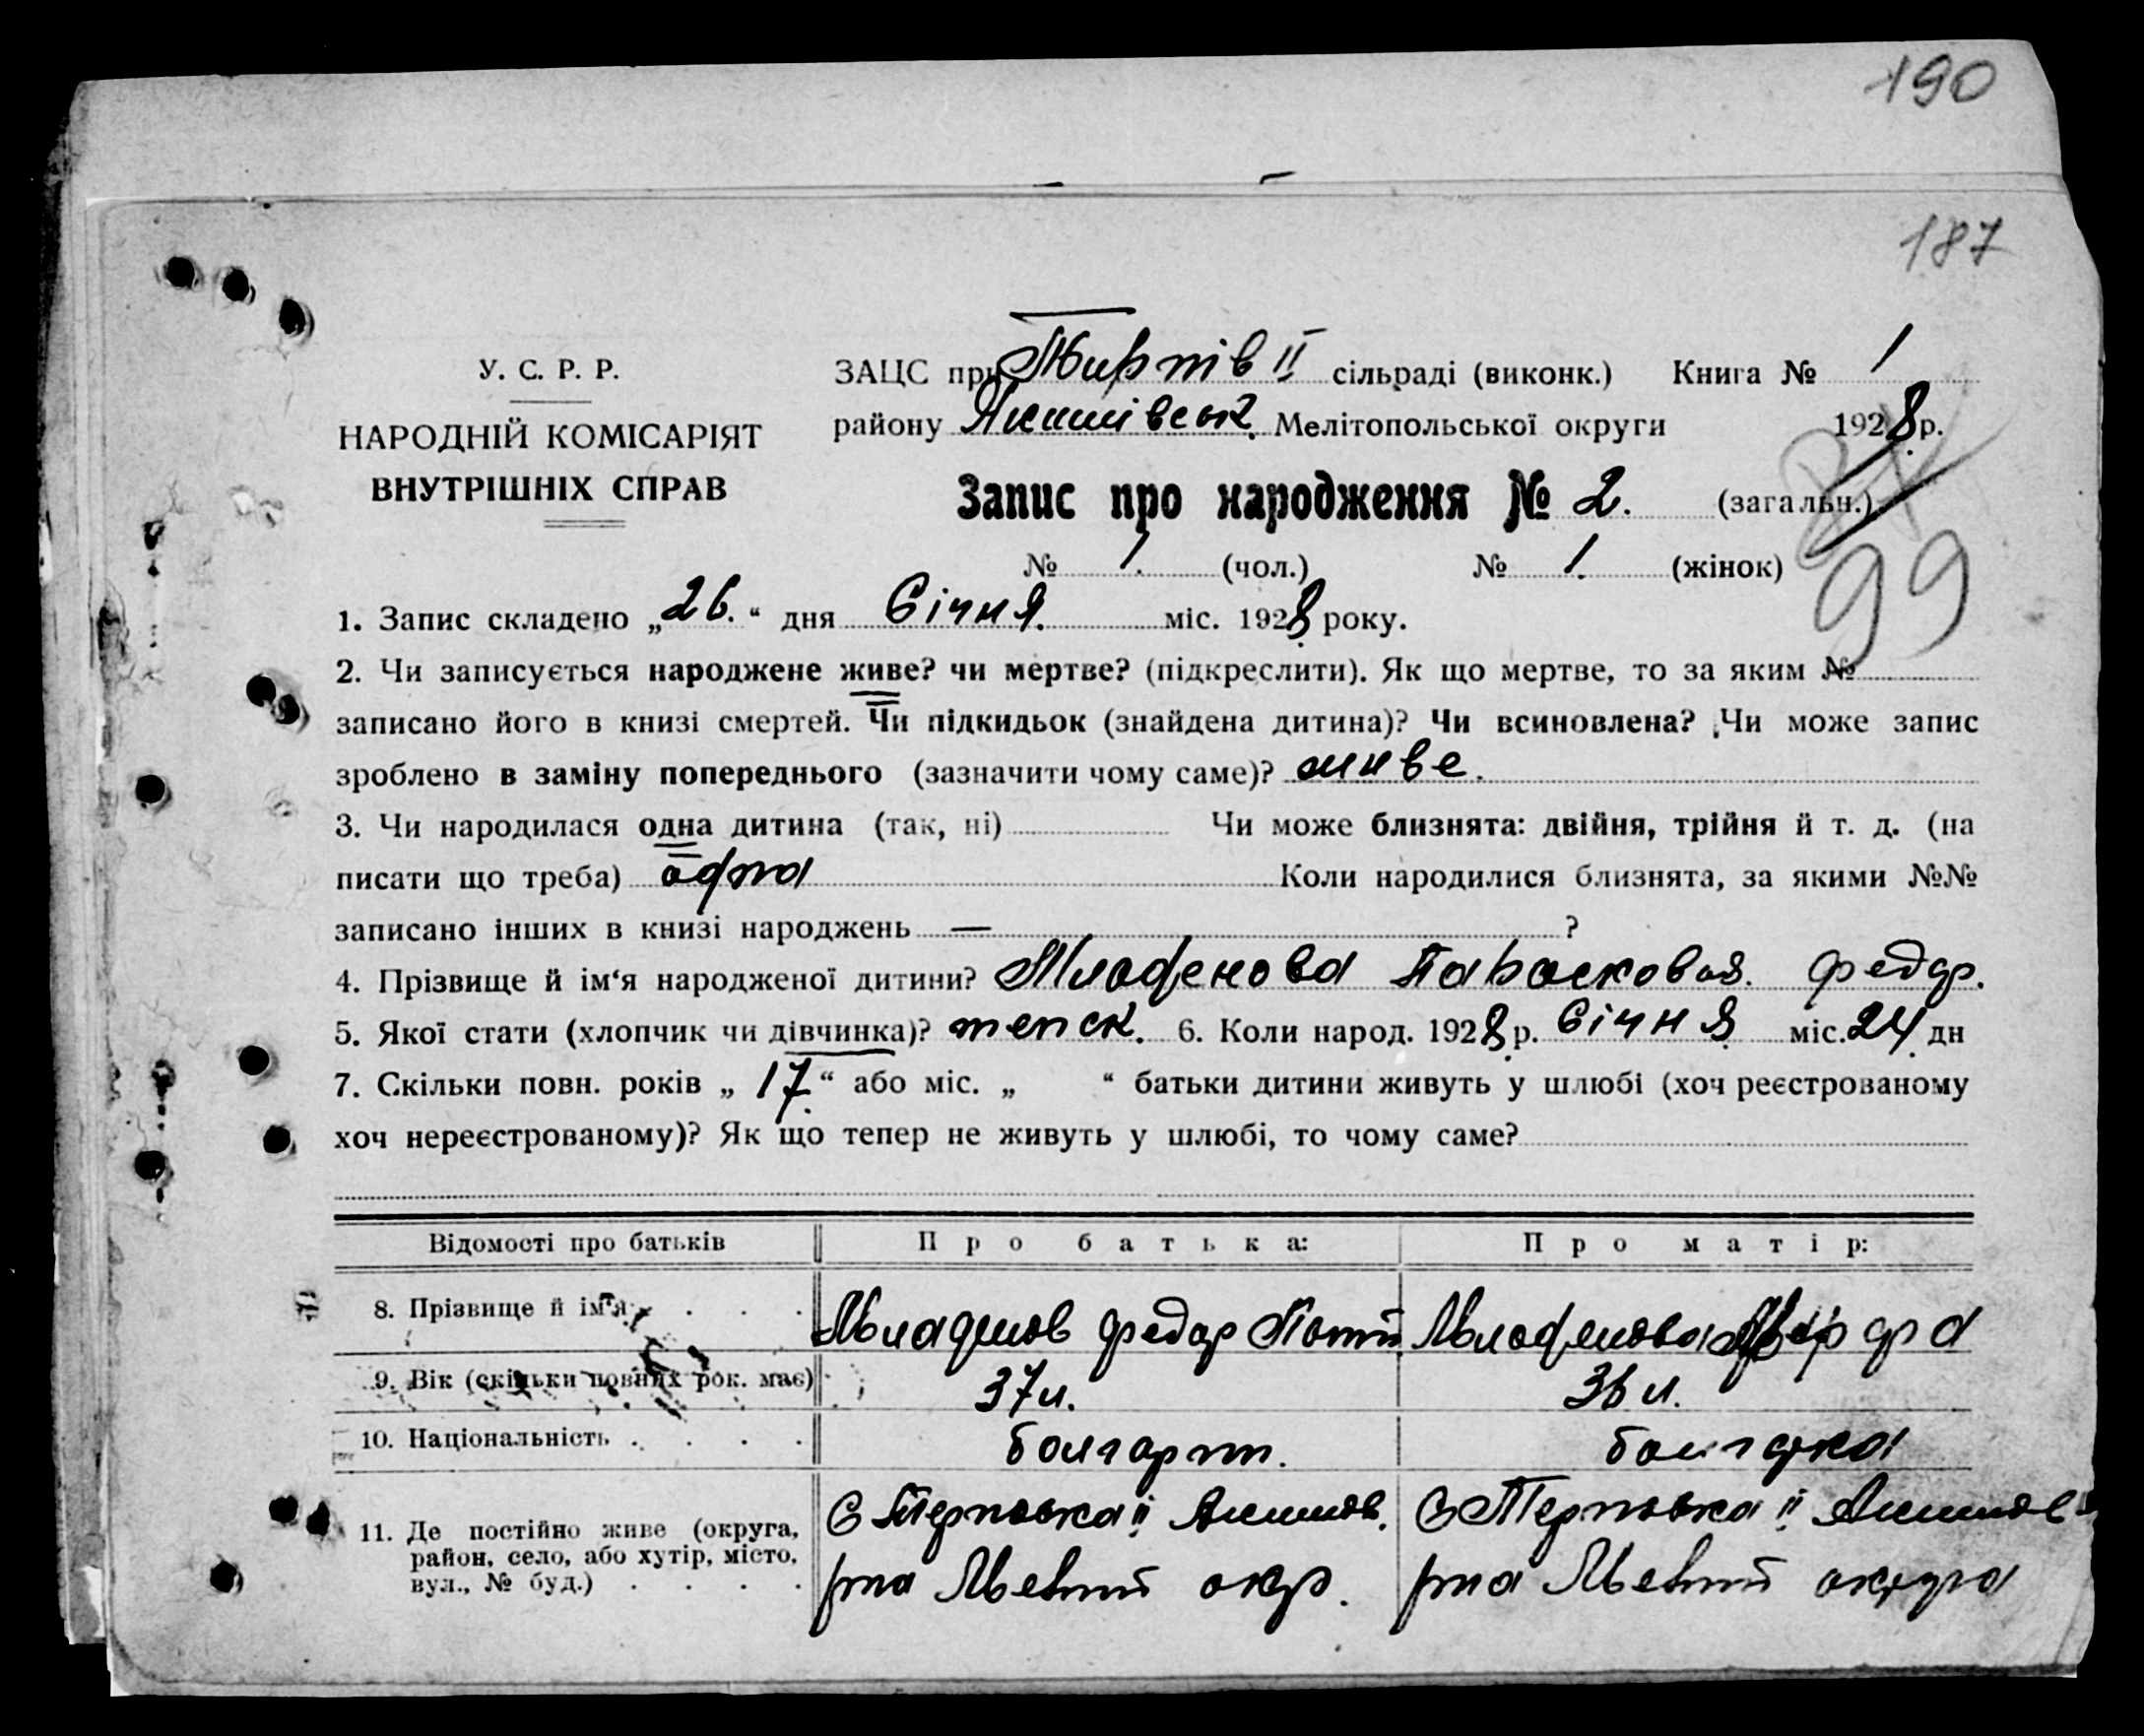 190
187
У. С. Р. Р.
НАРОДНІЙ КОМІСАРІЯТ
ВНУТРІШНІХ СПРАВ
ЗАЦС при II сільраді (виконк.) Книга № 1
району Якимівськ. Мелітопольської округи 1928 р.
Запис про народження № 2. (загальн.)
№ 1. (чол.) № 1. (жінок)
99
1. Запис складено „26.“ дня Січня. міс. 1928 року.
2. Чи записується народжене живе? чи мертве? (підкреслити). Як що мертве, то за яким №
записано його в книзі смертей. Чи підкидьок (знайдена дитина)? Чи всиновлена? Чи може запис
зроблено в заміну попереднього (зазначити чому саме)? живе.
3. Чи народилася одна дитина (так, ні) Чи може близнята: двійня, трійня й т. д. (на
писати що треба) одна Коли народилися близнята, за якими №№
записано інших в книзі народжень — ?
4. Прізвище й ім‘я народженої дитини? Младенова Парасковия. Федор.
5. Якої стати (хлопчик чи дівчинка)? женск. 6. Коли народ. 1928 р. Січня міс. 24 дн
7. Скільки повн. років „ 17 “ або міс. „ “ батьки дитини живуть у шлюбі (хоч реєстрованому
хоч нереєстрованому)? Як що тепер не живуть у шлюбі, то чому саме?
Відомості про батьків Про батька: Про матір:
8. Прізвище й ім'я Младенов Федор Младенова
9. Вік (скільки повних рок. має) 37 л. 36 л.
10. Національність болгарин. болгарка
11. Де постійно живе (округа, район, село, або хутір, місто, вул., № буд.)
С Терновка II Акимов. С Терновка II Акимов
рна Мелит окр. рна Мелит округа